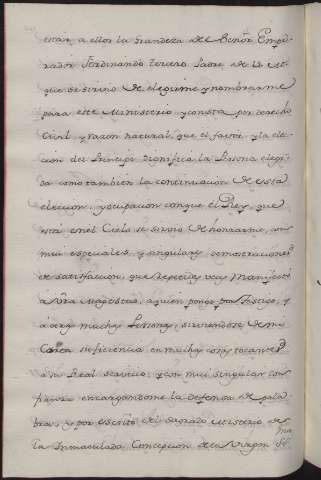 estár, a ellos la grandeza del Señor Empe-
rador Ferdinando tercero Padre de V. M.
que se sirvió de elegirme y nombrarme
para este Ministerio, y consta por derecho
Civil, y razon natural, que el favor, y la ele-
cion del Principe dignifica la Persona elegi-
da como tambien la continuacion de esta
eleccion, y ocupacion con que el Rey, que
está en el Cielo se sirvió de honrarme, con
mui especiales, y singulares demonstraciones
de satisfaccion, que repetidas veces manifestó
a Vra Magestad, a quien pongo por testigo, y
á otras muchas Personas, sirviendose de mi
corta suficiencia en muchas cosas tocantes
a su Real servicio, y con mui singular con-
fianza encargandome la defensa de pala-
bra, y por escrito del sagrado Misterio de
la Inmaculada Concepcion de la Virgen